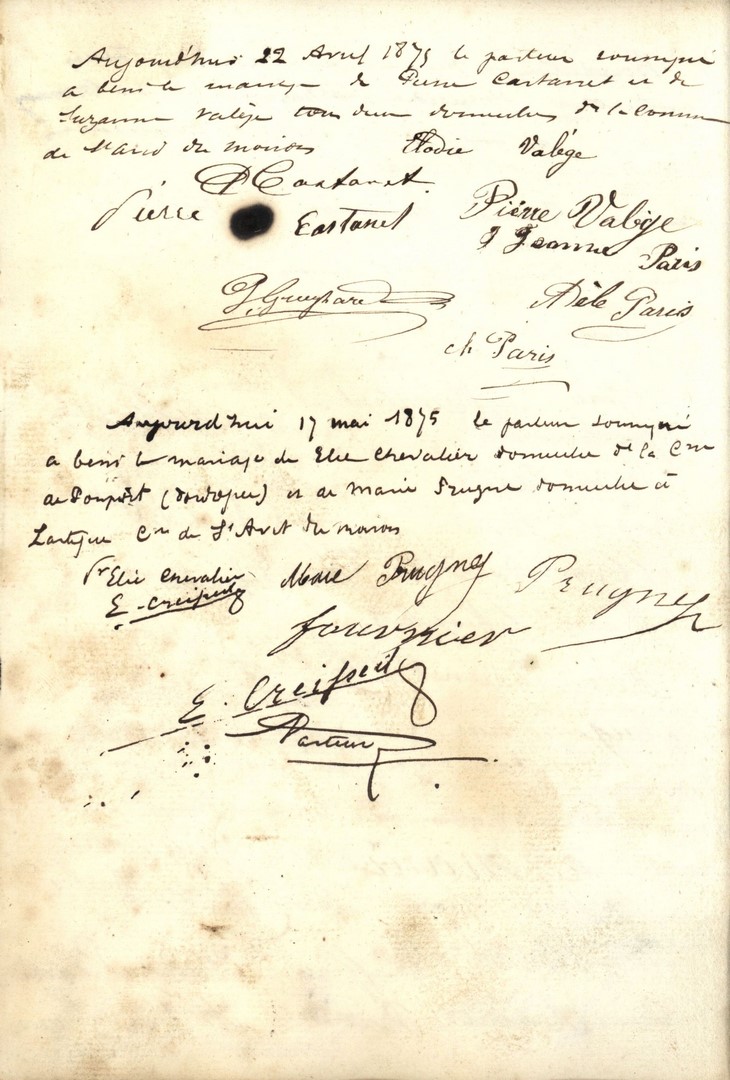 Aujourd'hui 22 Avril 1875 le pasteur soussigné
a beni le mariage de Pierre Castanet et de
Suzanne Valège tous deux domiciliés de la Commune
de St Avit du moiron Elodie Valège
P Castanet.
Pierre Castanet Pierre Valège
J Jeanne Paris
P. Guephard Adèle Paris
ch Paris
Aujourd'hui 17 mai 1875 le pasteur soussigné
a beni le mariage de Elie Chevalier domicilié de la Cne
de Ponport (Dordogne) et de Marie Prugne domiciliée à
Lartigue Cne de St Avit du moiron
Pr Elie Chevalier Marie Prugney Prugney
E. Creisseil
fournier
E. Creisseil
Pasteur